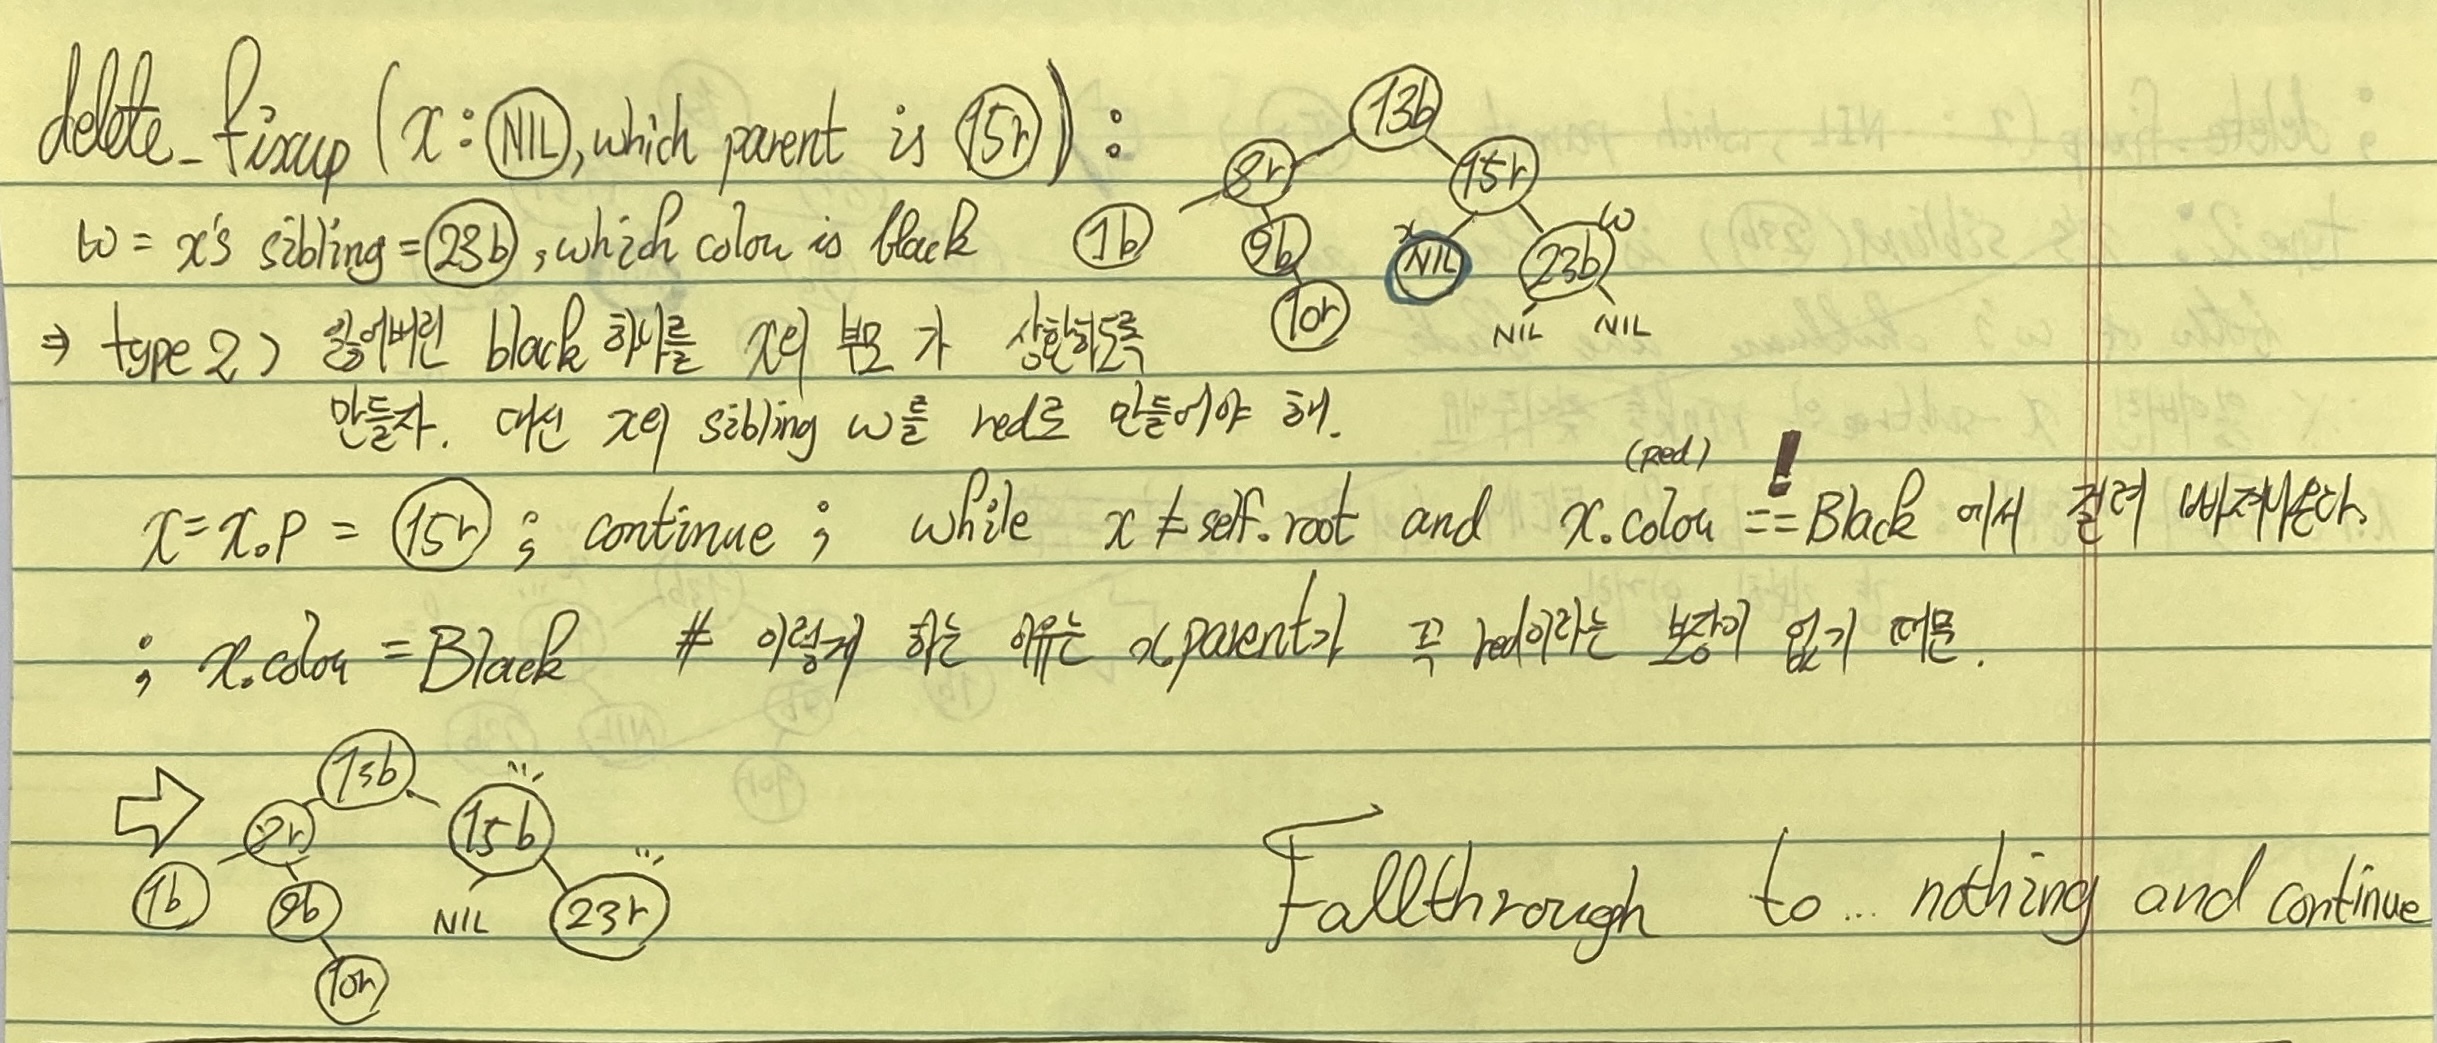 delete_fixup (x: NIL, which parent is 15r) :
w = x's sibling = 23b, which colou is black
⇒ type 2) 잃어버린 black 하나를 x의 부모가 상환하도록
만들자. 대신 x의 sibling w를 red로 만들어야 해.
(red)
x = x.p = 15r ; continue ; while x ≠ self.root and x.colou == Black 에서 걸려 빠져나온다.
; x.colou = Black # 이렇게 하는 이유는 x.parent가 꼭 red이라는 보장이 없기 때문.
13b
8r 15r
x w
1b 9b NIL 23b
10r NIL NIL
13b
15b
1b 9b NIL 23r
10r
Fallthrough to... nothing and continue